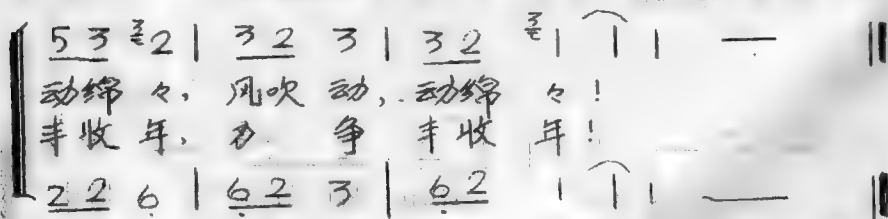 5 3 ³2 | 3 2 3 | 3 2 ³1 | 1 — ‖
动绵々，风吹动，动绵々！
丰收年，力争丰收年！
2 2 6̣ | 6̣ 2 3 | 6̣ 2 1 | 1 — ‖